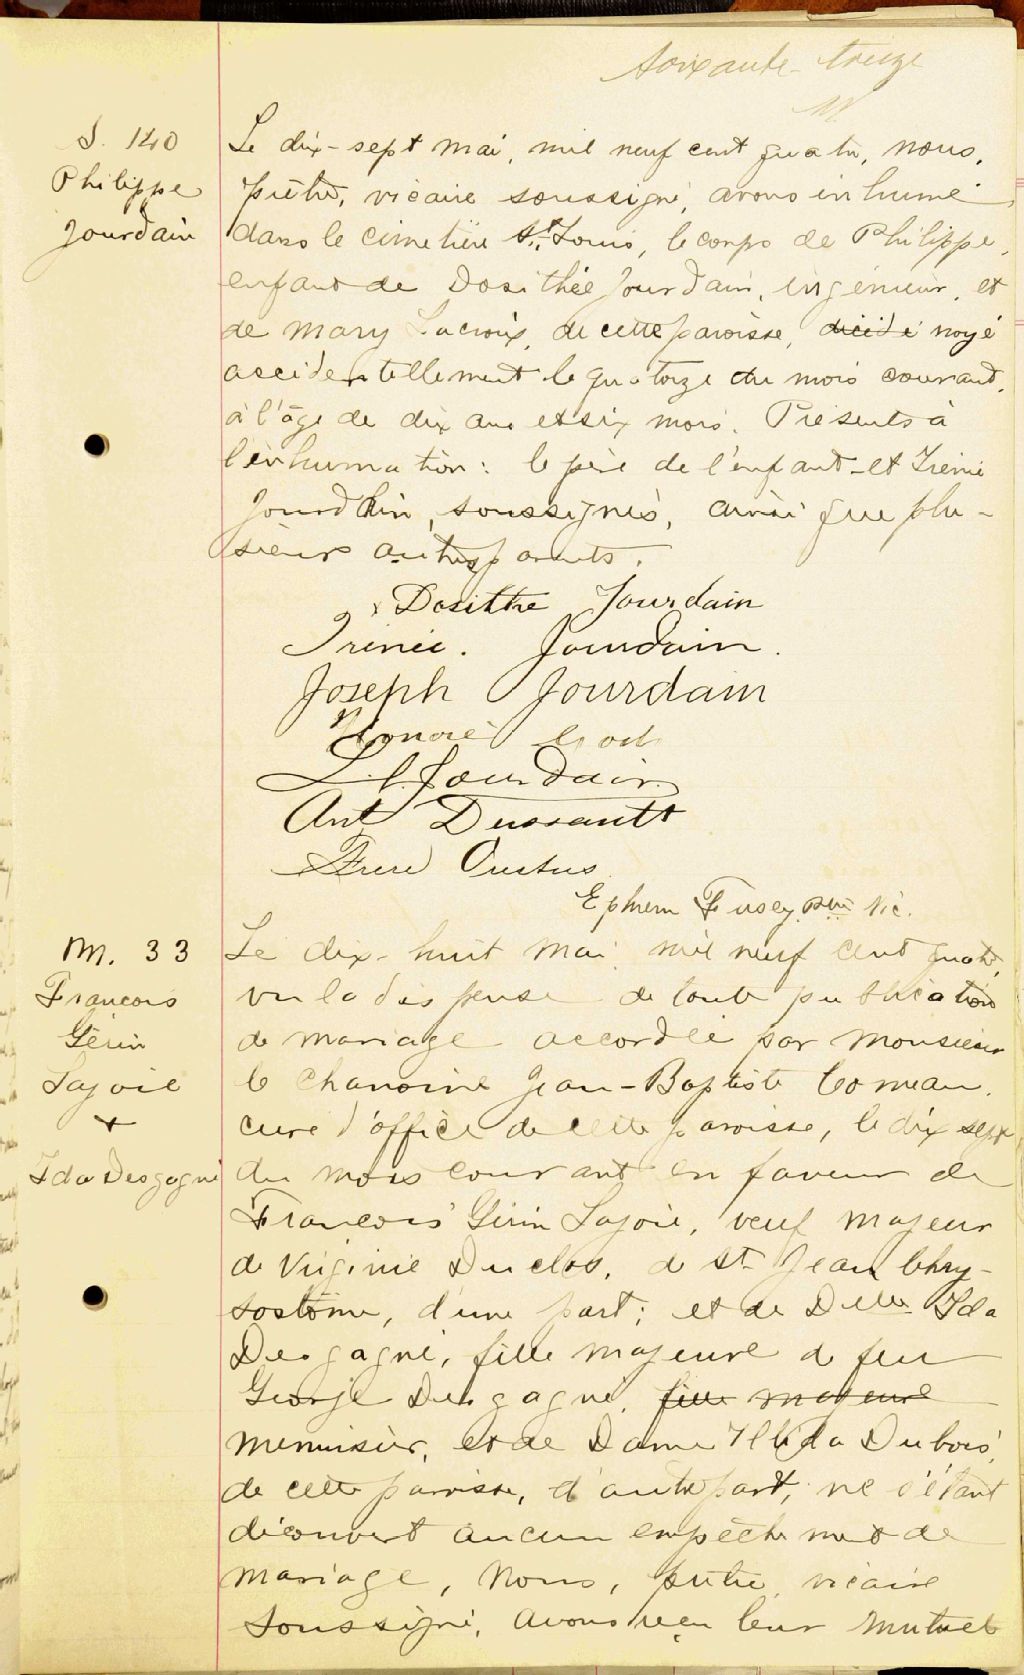 soixante-treize
S. 140
Philippe
Jourdain
Le dix-sept mai, mil neuf cent quatre, nous,
prêtre, vicaire soussigné, avons inhumé
dans le cimetière St. Louis, le corps de Philippe,
enfant de Dosithée Jourdain, ingénieur, et
de Mary Lacroix, de cette paroisse, décédé noyé
accidentellement le quatorze du mois courant,
à l'âge de dix ans et six mois. Présents à
l'inhumation: le père de l'enfant et Irénée
Jourdain, soussignés, ainsi que plu-
sieurs autres parents.
Dosithe Jourdain
Irénée. Jourdain.
Joseph Jourdain
Honoré
L. J. Jourdain
Ant Dussault
Frere
Ephrem Fusey, ptre vic.
M. 33
François
Gérin
Lajoie
+
Ida Desgagné
Le dix-huit mai mil neuf cent quatre,
vu la dispense de toute publication
de mariage accordée par monsieur
le chanoine Jean-Baptiste Comeau,
curé d'office de cette paroisse, le dix sept
du mois courant en faveur de
François Gérin Lajoie, veuf majeur
de Virginie Duclos, de St Jean Chry-
sostôme, d'une part; et de Delle Ida
Desgagné, fille majeure de feu
George Desgagné, fille majeure
menuisier, et de Dame Dubois,
de cette paroisse, d'autre part, ne s'étant
découvert aucun empêchement de
mariage, Nous, prêtre, vicaire
soussigné, avons reçu leur mutuel